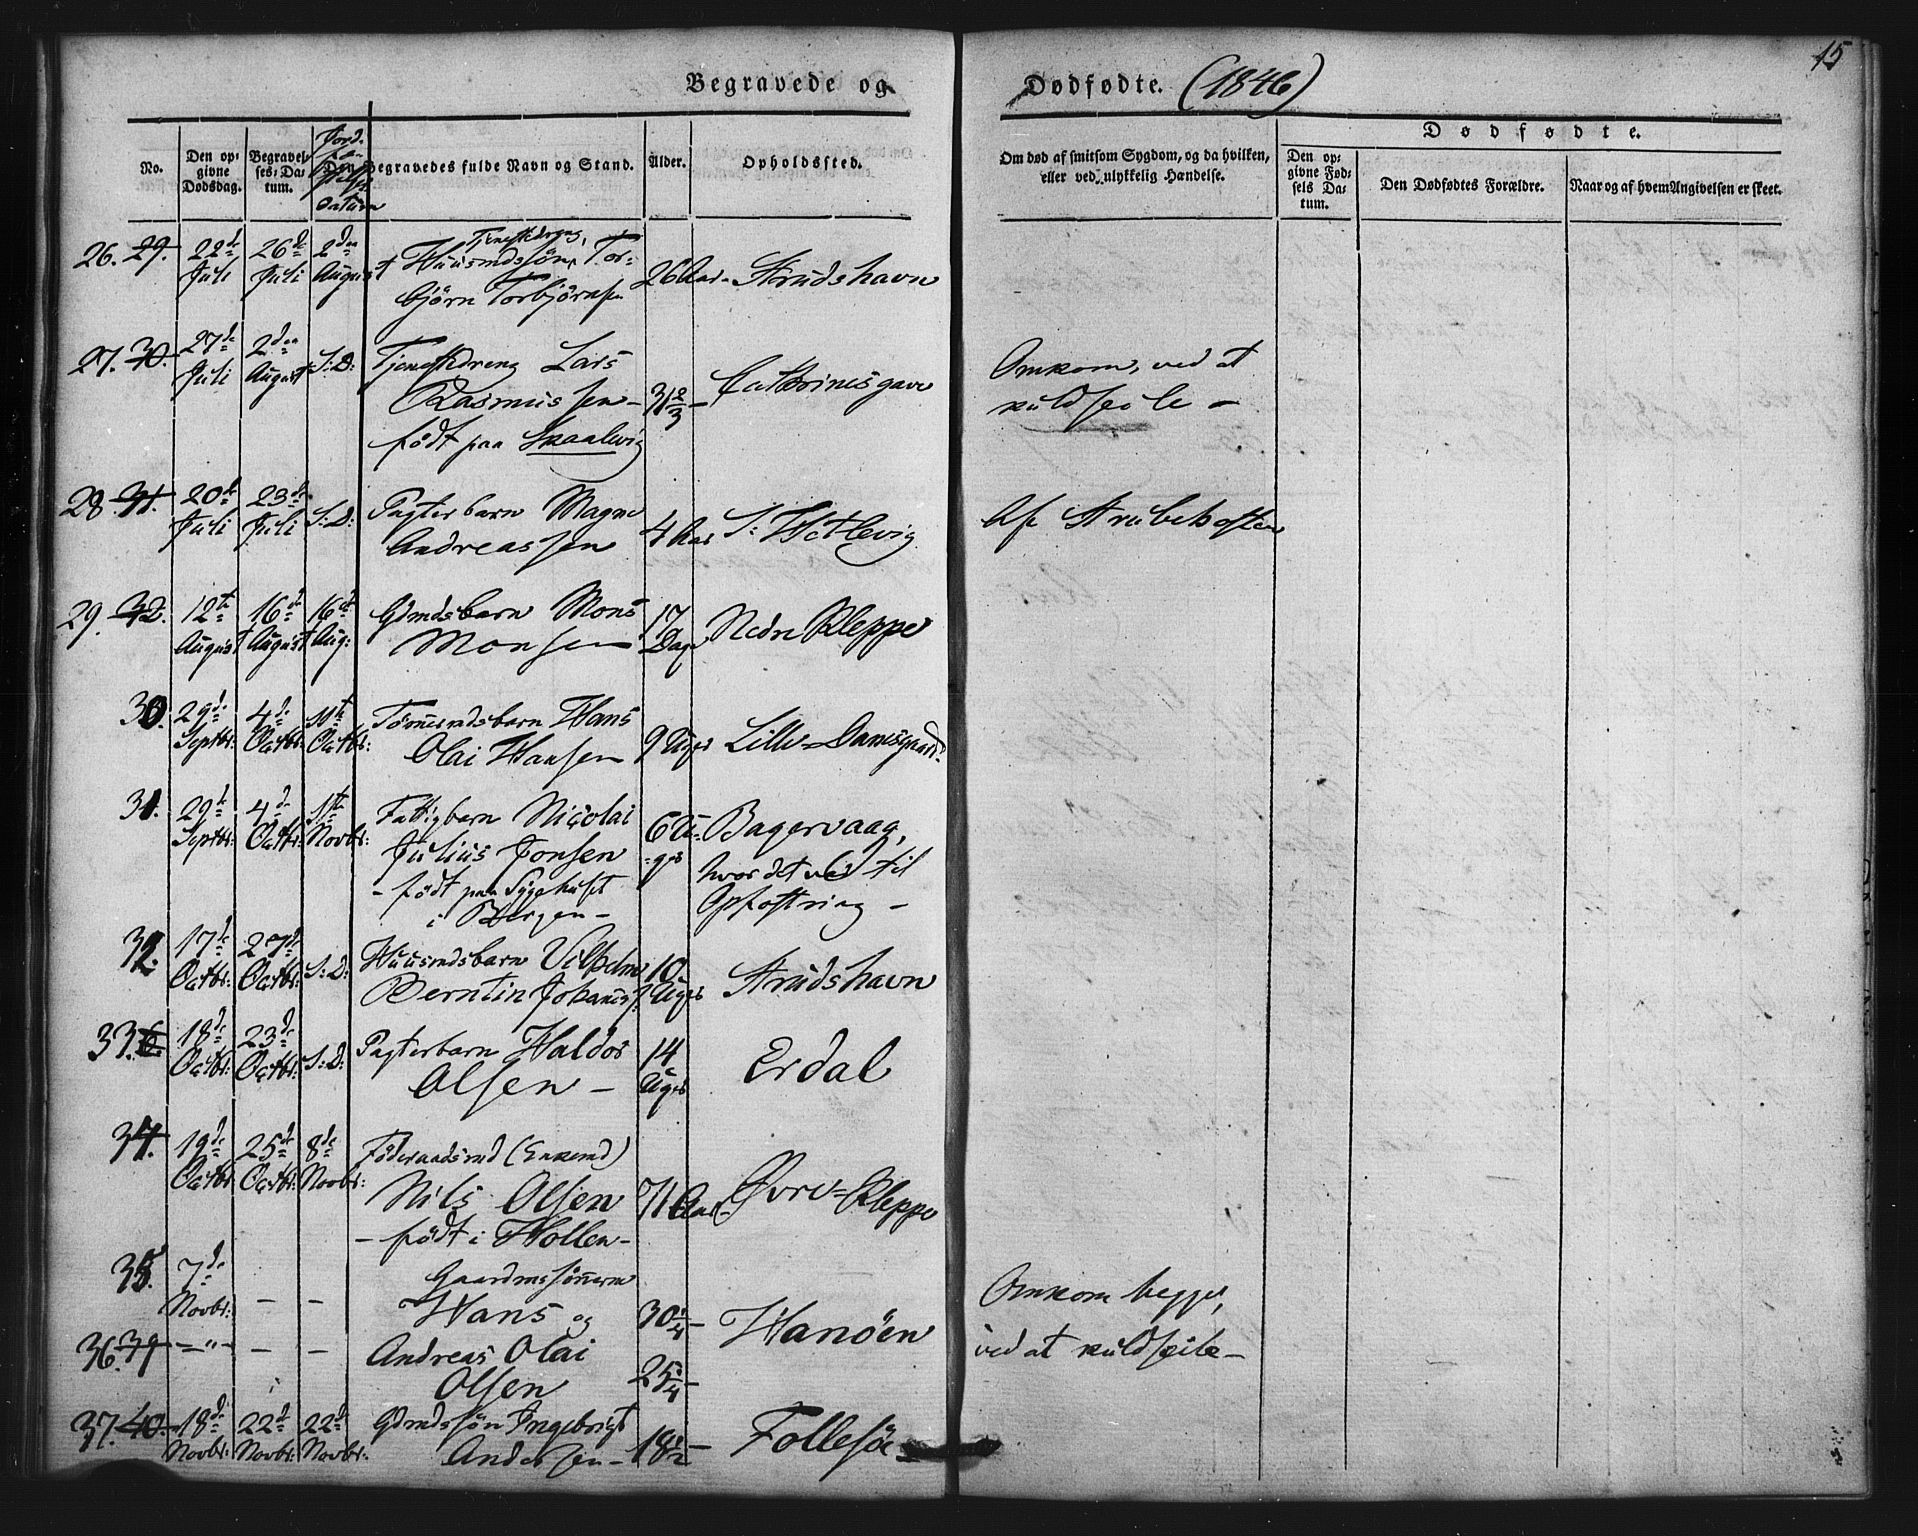 15
Begravede og Dødfødte. (1846)
No.
Den op-
givne
Dødsdag.
Begravel-
ses-Da-
tum.
Jord-
paa-
datum
Den Begravedes fulde Navn og Stand.
Alder.
Opholdssted.
Om død af smitsom Sygdom, og da hvilken,
eller ved ulykkelig Hændelse.
Dødfødte.
Den op-
givne Fød-
sels Da-
tum.
Den Dødfødtes Forældre.
Naar og af hvem Angivelsen er skeet.
26. 29. 22de Juli 26de Juli 2den August
Tjenestedreng,
Huusmdssön, Tor-
björn Torbjörnsen
26 Aar - Strudshavn
27. 30. 27de Juli 2den August S: D:
Tjenestedreng Lars
Rasmussen -
födt paa Skaalvig
31 2/3 - Cathrinesgave
Omkom, ved at
kuldseile -
28 31. 20de Juli 23de Juli S: D:
Pagterbarn Magne
Andreassen
4 Aar S: Hetlevig
Af Strubehosten
29. 32. 12te August 16de August 16de Aug:
Gdmdsbarn Mons
Monsen
17 Dage Nedre Kleppe
30. 29de Septbr: 4de Octbr: 11te Octbr:
Tömmdsbarn Hans
Olai Hansen
9 Uger Lille-Damsgaard
31. 29de Septbr: 4de Octbr: 1ste Novbr:
Fattigbarn Nicolai
Julius Jonsen
- födt paa Sygehuset
i Bergen -
6 U-
-ger
Bagervaag,
hvor det var til
Opfostring -
32. 17de Octbr: 27de Octbr: S: D:
Huusmdsbarn Vilhelm
Berntin Johannes:
10 Uger Strudshavn
33. 18de Octbr: 23de Octbr: S: D:
Pagterbarn Haldor
Olsen -
14 Uger Erdal
34. 19de Octbr: 25de Octbr: 8de Novbr:
Föderaadsmd (Enkemd)
Nils Olsen
- födt i Hollen -
71 Aar - Øvre-Kleppe
35. 7de Novbr: - -
Gaardmssönnerne
Hans og
30 1/4 - Hanöen
Omkom begge,
ved at kuldseile -
36. 39 - " - - -
Andreas Olai
Olsen
25 /4 -
37. 40. 18de Novbr: 22de Novbr: 22de Novbr:
Gdmdssön Ingebrigt
Andersen -
18 1/2 - Follesöe